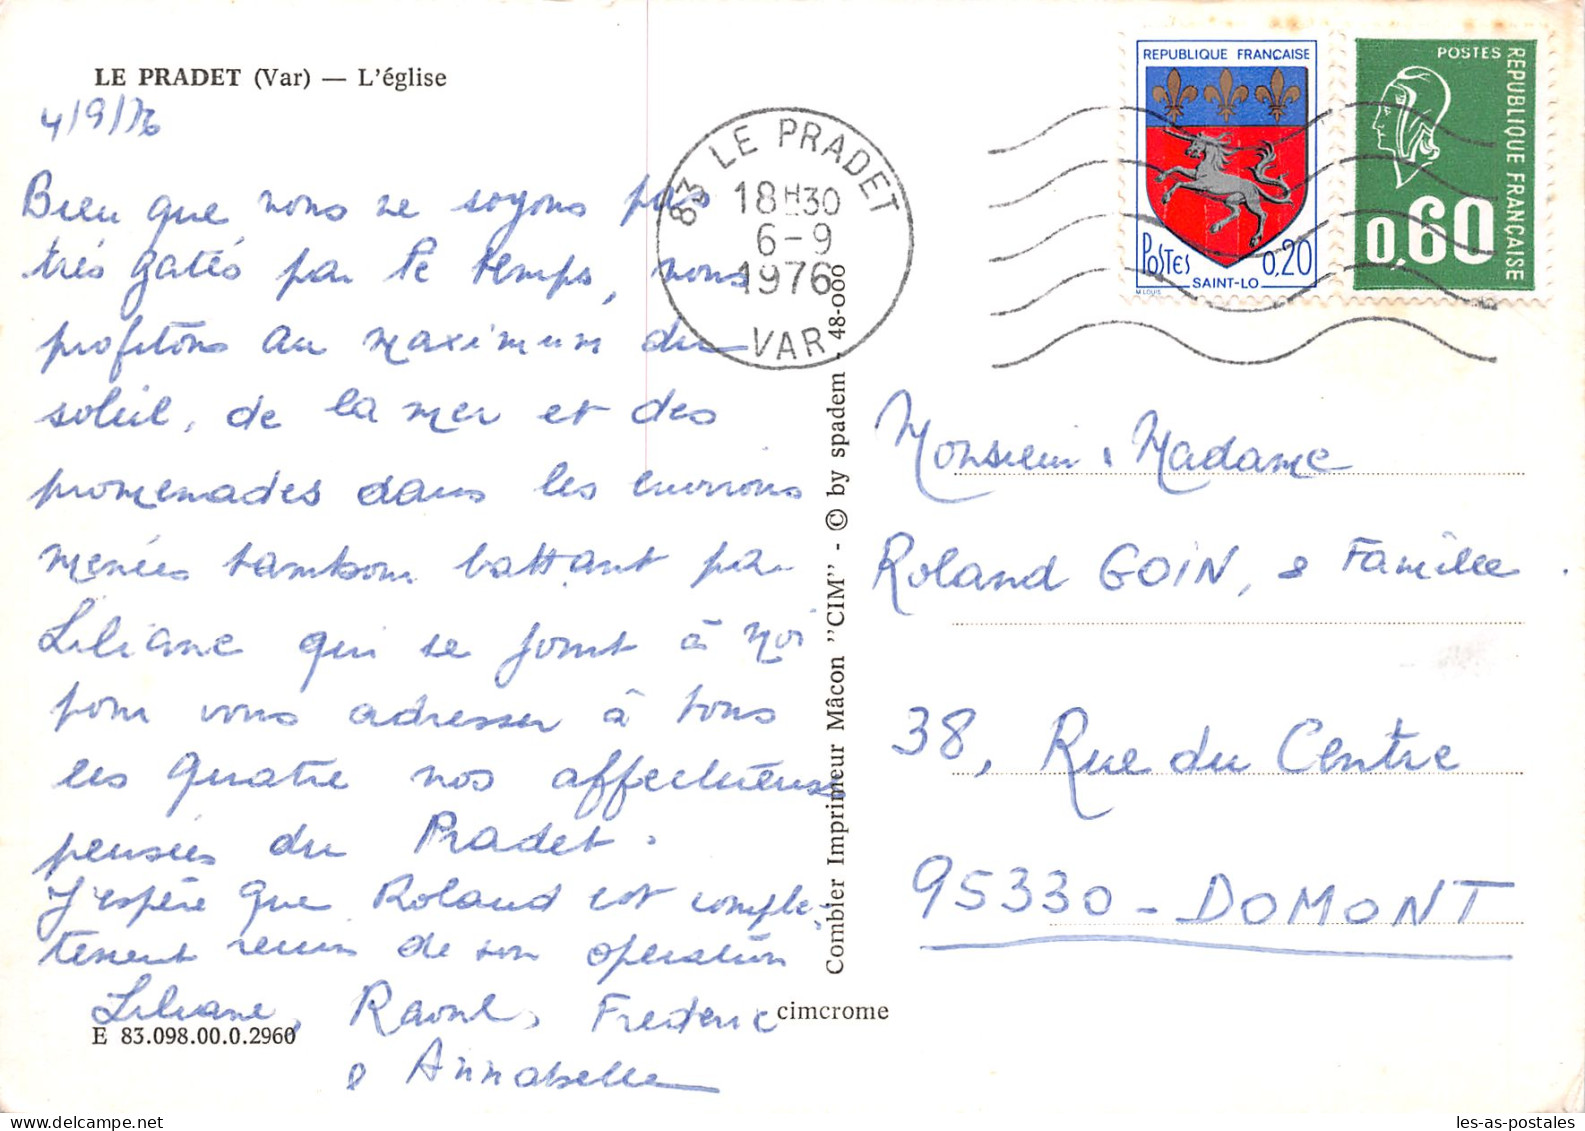 LE PRADET (Var) — L'église
4/9/76
Bien que nous ne soyons pas
très gatés par le temps, nous
profitons au maximum du
soleil, de la mer et des
promenades dans les environs
menées tambour battant par
Liliane qui se joint à moi
pour vous adresser à tous
les quatre nos affectueuses
pensées du Pradet.
J'espère que Roland est complè-
tement remis de son opération
Liliane, Raoul, Frédéric
& Annabelle
E 83.098.00.0.2960
cimcrome
Combier Imprimeur Mâcon "CIM" - © by spadem - 48-000
83 LE PRADET
18H30
6-9
1976
VAR
REPUBLIQUE FRANÇAISE
POSTES
0,20
SAINT-LO
M.LOUIS
POSTES
REPUBLIQUE FRANÇAISE
0,60
Monsieur & Madame
Roland GOIN, & Famille.
38, Rue du Centre
95330 - DOMONT
les-as-postales